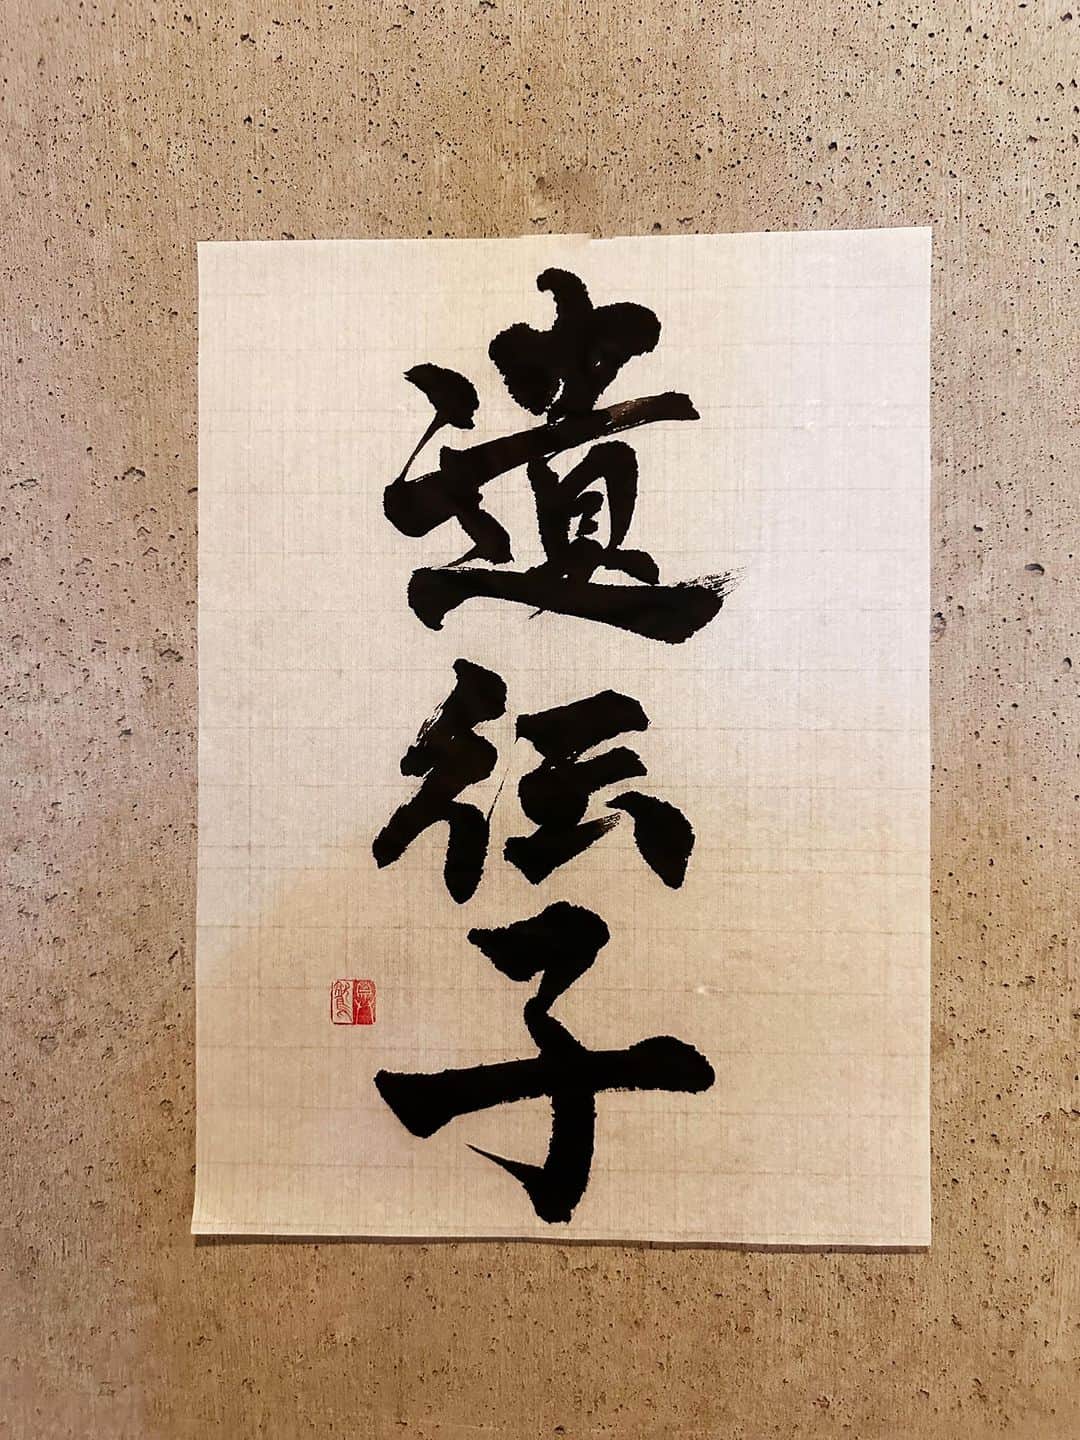 遺伝子